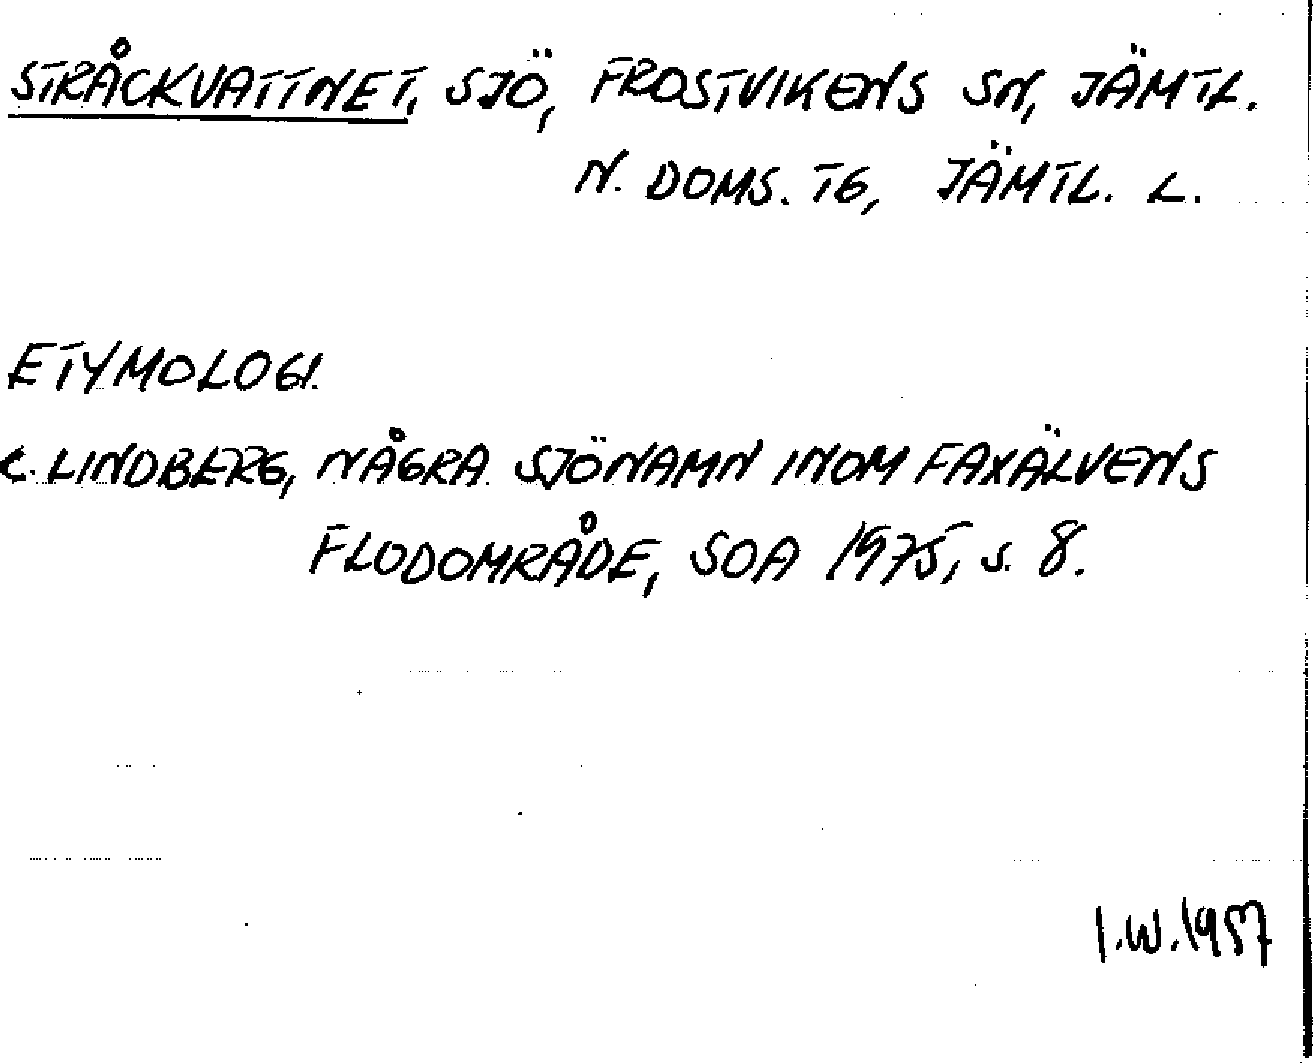 STRÅCKVATTNET, SJÖ, FROSTVIKENS SN, JÄMTL.
N. DOMS. TG, JÄMTL. L.
ETYMOLOGI.
C. LINDBERG, NÅGRA SJÖNAMN INOM FAXÄLVENS
FLODOMRÅDE, SOA 1975, S. 8.
I.W. 1987